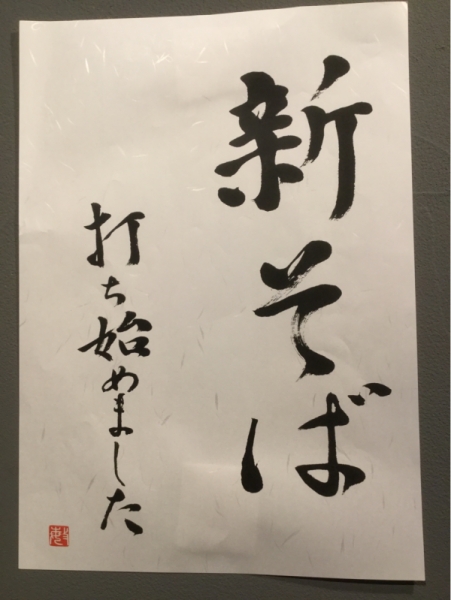 新そば
打ち始めました